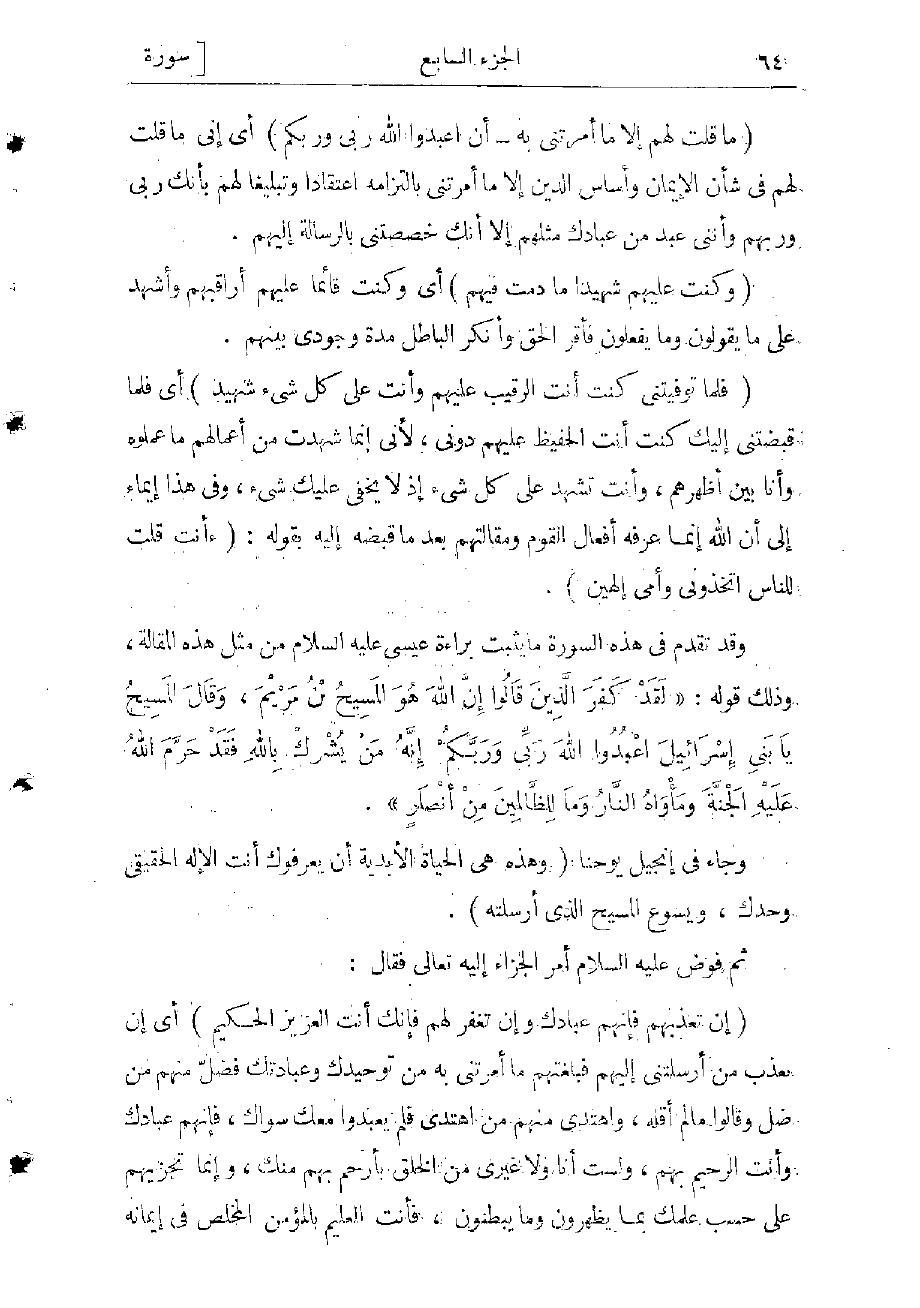 ٦٤ الجزء السابع [ سورة
( ما قلت لهم إلا ما أمرتنى به ــ أن اعبدوا الله ربى وربكم ) أى إنى ما قلت
لهم فى شأن الإيمان وأساس الدين إلا ما أمرتنى بالتزامه اعتقادا وتبليغا لهم بأنك ربى
وربهم وأننى عبد من عبادك مثلهم إلا أنك خصصتنى بالرسالة إليهم .
( وكنت عليهم شهيدا ما دمت فيهم ) أى وكنت قائما عليهم أراقبهم وأشهد
على ما يقولون وما يفعلون فأقر الحق وأنكر الباطل مدة وجودى بينهم .
( فلما توفيتنى كنت أنت الرقيب عليهم وأنت على كل شىء شهيد ) أى فلما
قبضتنى إليك كنت أنت الحفيظ عليهم دونى ، لأنى إنما شهدت من أعمالهم ما عملوه
وأنا بين أظهرهم ، وأنت تشهد على كل شىء إذ لا يخفى عليك شىء ، وفى هذا إيماء
إلى أن الله إنما عرفه أفعال القوم ومقالتهم بعد ما قبضه إليه بقوله : ( ءأنت قلت
للناس اتخذونى وأمى إلهين ) .
وقد تقدم فى هذه السورة ما يثبت براءة عيسى عليه السلام من مثل هذه المقالة ،
وذلك قوله : « لَقَدْ كَفَرَ الَّذِينَ قَالُوا إِنَّ اللهَ هُوَ الْمَسِيحُ بْنُ مَرْيَمَ ، وَقَالَ الْمَسِيحُ
يَا بَنِي إِسْرَائِيلَ اعْبُدُوا اللهَ رَبِّى وَرَبَّكُمْ إِنَّهُ مَنْ يُشْرِكْ بِاللهِ فَقَدْ حَرَّمَ اللهُ
عَلَيْهِ الْجَنَّةَ وَمَأْوَاهُ النَّارُ وَمَا لِلظَّالِمِينَ مِنْ أَنْصَارٍ » .
وجاء فى إنجيل يوحنا ( وهذه هى الحياة الأبدية أن يعرفوك أنت الإله الحقيقى
وحدك ، ويسوع المسيح الذى أرسلته ) .
ثم فوض عليه السلام أمر الجزاء إليه تعالى فقال :
( إن تعذبهم فإنهم عبادك وإن تغفر لهم فإنك أنت العزيز الحكيم ) أى إن
تعذب من أرسلتنى إليهم فبلغتهم ما أمرتنى به من توحيدك وعبادتك فضلّ منهم من
ضل وقالوا مالم أقله ، واهتدى منهم من اهتدى فلم يعبدوا معك سواك ، فإنهم عبادك
وأنت الرحيم بهم ، ولست أنا ولا غيرى من الخلق بأرحم بهم منك ، وإنما تجزيهم
على حسب علمك بما يظهرون وما يبطنون ، فأنت العليم بالمؤمن المخلص فى إيمانه